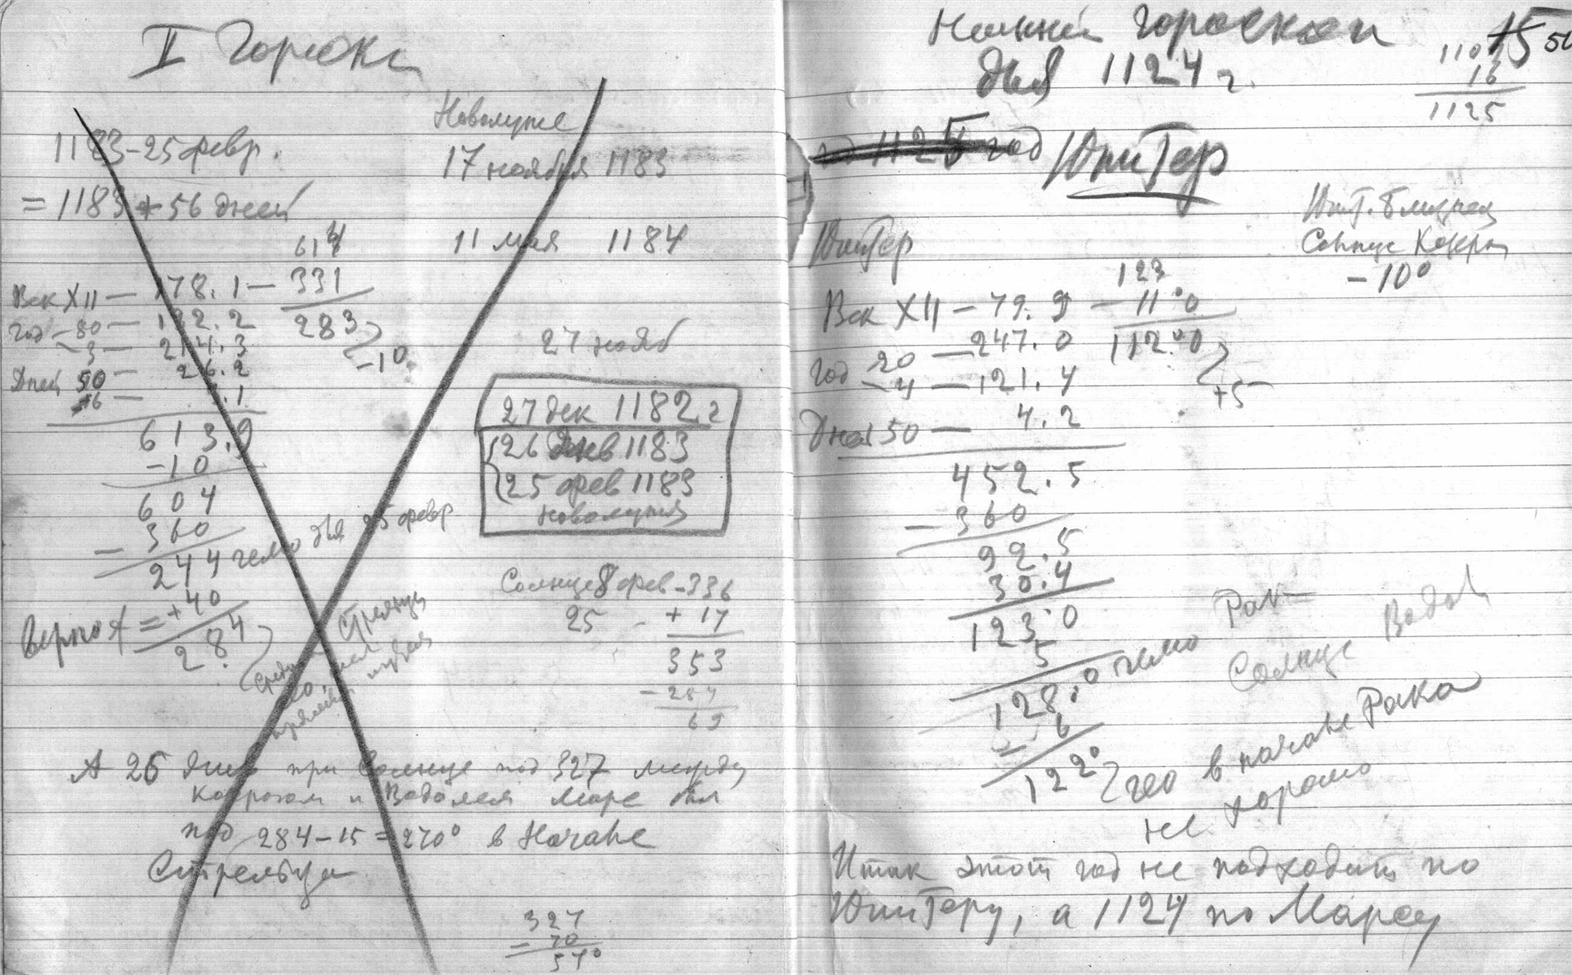 I
1183-25 февр.
= 1183 + 56 дней
Новолуние
17 ноября 1183
11 мая 1184
614
Век XII — 178.1 — 331
год -80 — 192.2
283
-3 — 214.3
-10
Дней 50 — 26.2
-6 — .1
613.9
-10
604
- 360
244 гелио для 25 февр
+40
284
27 нояб
27 дек 1182 г
26 янв 1183
25 фев 1183
новолуния
Солнце 8 фев -336
25 - + 17
353
-284
69
А 26 янв при Солнце под 327 между
Козрогом и Водолея Марс был
под 284-15=270° в Начале
Стрельца
327
= 70
57°
Нижний гороскоп
для 1124 г.
1109
16
1125
15
год
Юпитер
Юпит. Близнец
Солнце Козрог
-10°
Юпитер
123
Век XII — 79.9 — 11°0
год 20 — 247.0
112°0
-4 — 121.4
+5
Дней 50 — 4.2
452.5
- 360
92.5
30.4
123.0
5
128.0 гелио Рак
Солнце Водол
- 6
122° гео в начале Рака
не хорошо
Итак этот год не подходит по
Юпитеру, а 1124 по Марсу